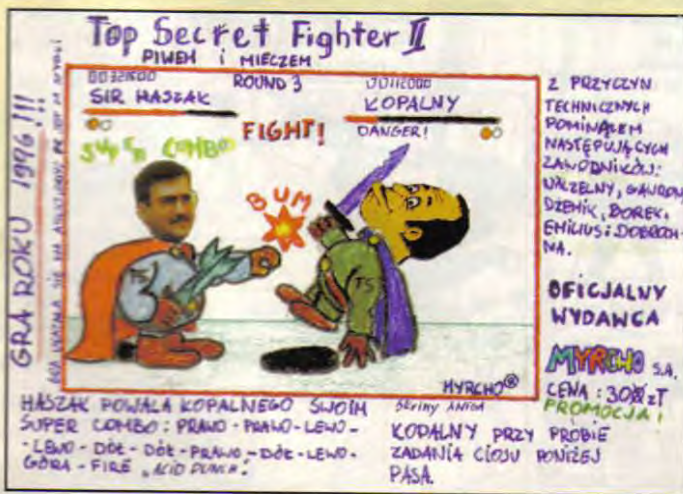 Top Secret Fighter II
PIWEM i MIECZEM
00321500
ROUND 3
00112000
SIR HASZAK
KOPALNY
FIGHT!
DANGER!
SUPER COMBO
BUM
TS
TS
MYRCHO®
GRA ROKU 1996!!!
GRA UKAZAŁA SIĘ NA
Z PRZYCZYN
TECHNICZNYCH
POMINĄŁEM
NASTĘPUJĄCYCH
ZAWODNIKÓW:
NACZELNY, GAWRON,
DŻEMIK, BOREK,
EMILIUS i DOBROCH-
NA.
OFICJALNY
WYDAWCA
MYRCHO S.A.
CENA: 30 zł
PROMOCJA!
HASZAK POWALA KOPALNEGO SWOIM
SUPER COMBO: PRAWO-PRAWO-LEWO-
-LEWO-DÓŁ-DÓŁ-PRAWO-DÓŁ-LEWO-
GÓRA-FIRE „ACID PUNCH".
KOPALNY PRZY PRÓBIE
ZADANIA CIOSU PONIŻEJ
PASA.